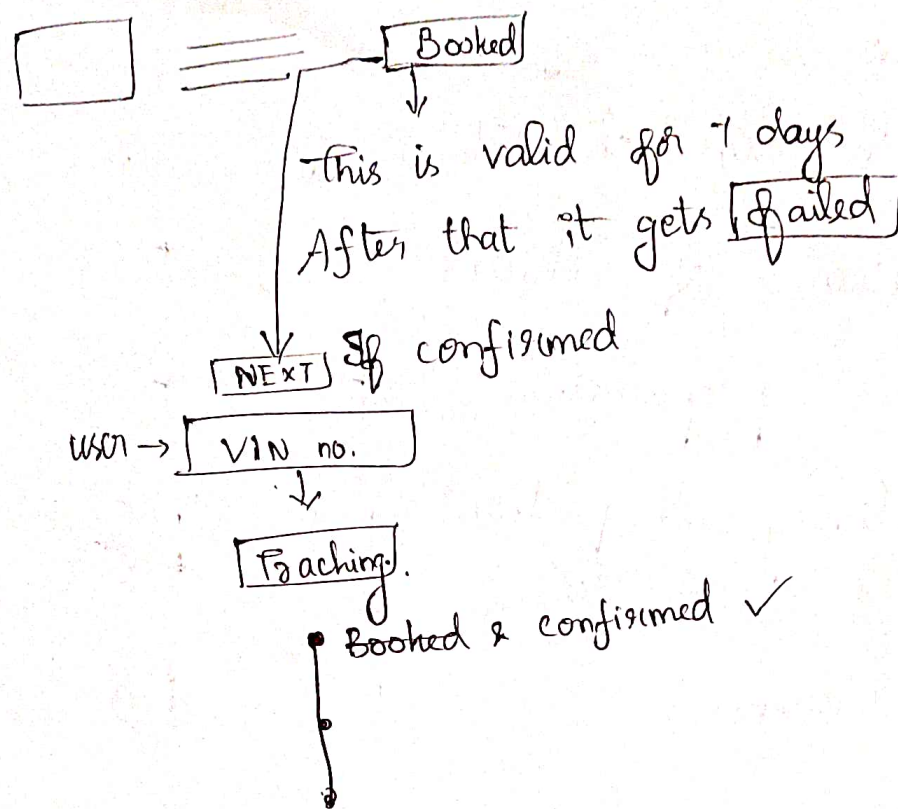 Booked
This is valid for 7 days
After that it gets failed
NEXT If confirmed
user → VIN no.
Tracking.
Booked & confirmed ✓